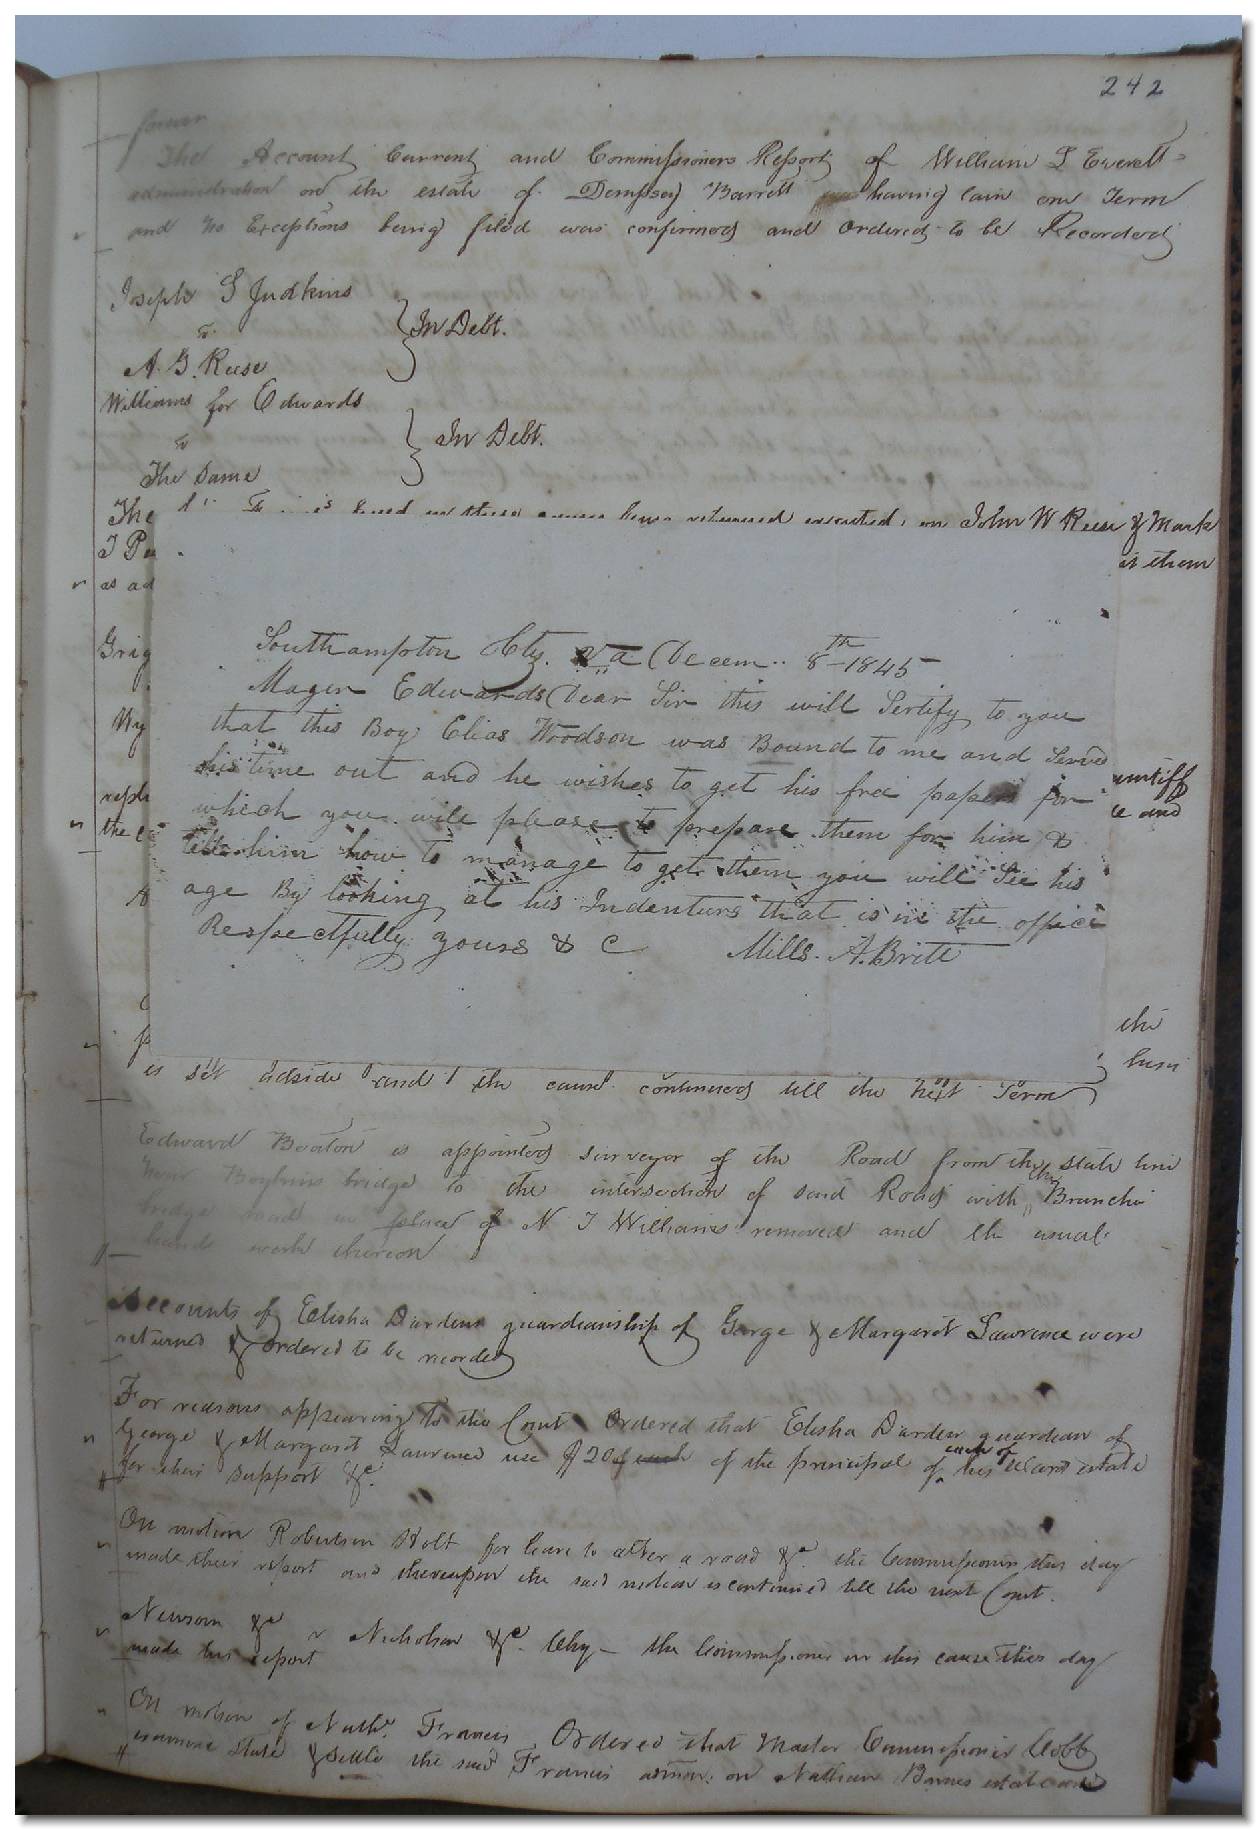 242
forever
The Account Current and Commissioners Report of William L Everett
administration on the estate of Dempsey Barrett having lain one Term
and No Exceptions being filed was confirmed and ordered to be Recorded
Joseph S Judkins
v
A. G. Reese
In Debt.
Williams for Edwards
v
The Same
In Debt.
The in these causes been returned executed on John W Reese & Mark
J
as ad
Grig
Wy
the
Southampton Cty. Va Decem.. 8th 1845
Mager Edwards Dear Sir this will Sertify to you
that this Boy Elias Woodson was Bound to me and Served
his time out and he wishes to get his free papers for
which you will please to prepare them for him &
tell him how to manage to get them you will See his
age By looking at his Indenturs that is in the office
Respectfully yours & C Mills. A. Britt
them
and
the
is set adside and the cause continued till the next Term
Edward Beaton is appointed surveyor of the Road from the state line
near Boykins bridge to the intersection of said Road with the Branch
bridge road in place of N J Williams removed and the usual
hands work thereon
Accounts of Elisha Darden guardianship of George & Margaret Lawrence were
returned & ordered to be recorded
For reasons appearing to the Court Ordered that Elisha Darden guardian of
George & Margaret Lawrence use $20 of each of the principal of each of his ward estate
for their support &c
On motion Robertson Holt for leave to alter a road &c. the Commissioners this day
made their report and thereupon the said motion is continued till the next Court.
Newsom &c v Nicholson &c. Chy - the Commissioner in this cause this day
made his report
On motion of Nathl. Francis Ordered that Master Commissioner Cobb
examine State & settle the said Francis admon. on Nathan Barnes estate and